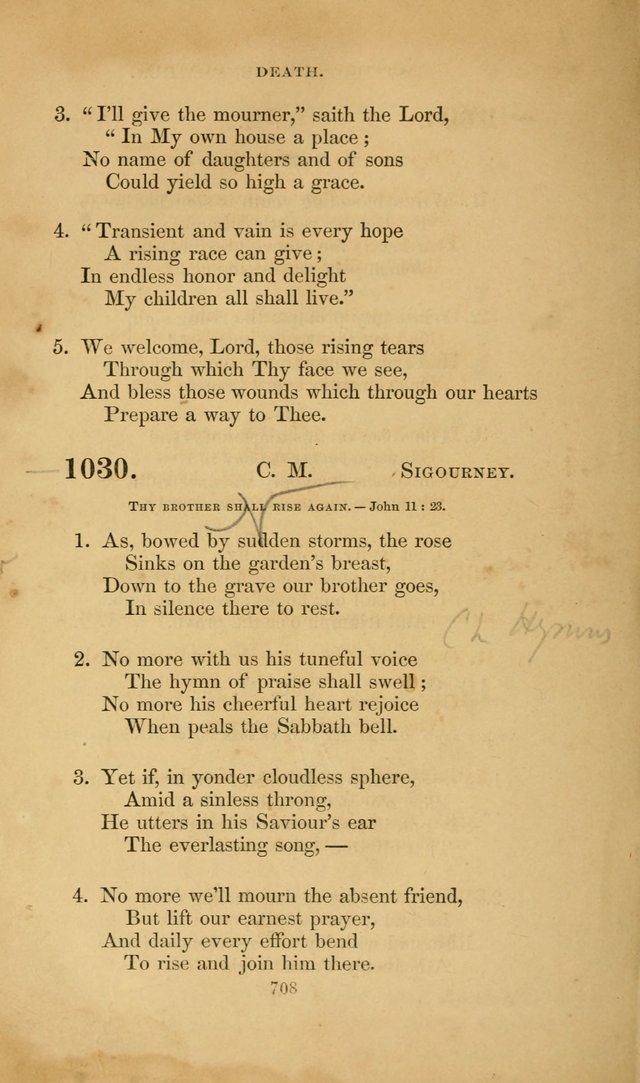 DEATH.
3. “ I'll give the mourner,” saith the Lord,
“ In My own house a place ;
No name of daughters and of sons
Could yield so high a grace.
4. “ Transient and vain is every hope
A rising race can give ;
In endless honor and delight
My children all shall live.”
5. We welcome, Lord, those rising tears
Through which Thy face we see,
And bless those wounds which through our hearts
Prepare a way to Thee.
1030. C. M. SIGOURNEY.
THY BROTHER SHALL RISE AGAIN. — John 11 : 23.
1. As, bowed by sudden storms, the rose
Sinks on the garden's breast,
Down to the grave our brother goes,
In silence there to rest.
Ch Hymns
2. No more with us his tuneful voice
The hymn of praise shall swell ;
No more his cheerful heart rejoice
When peals the Sabbath bell.
3. Yet if, in yonder cloudless sphere,
Amid a sinless throng,
He utters in his Saviour's ear
The everlasting song, —
4. No more we'll mourn the absent friend,
But lift our earnest prayer,
And daily every effort bend
To rise and join him there.
708